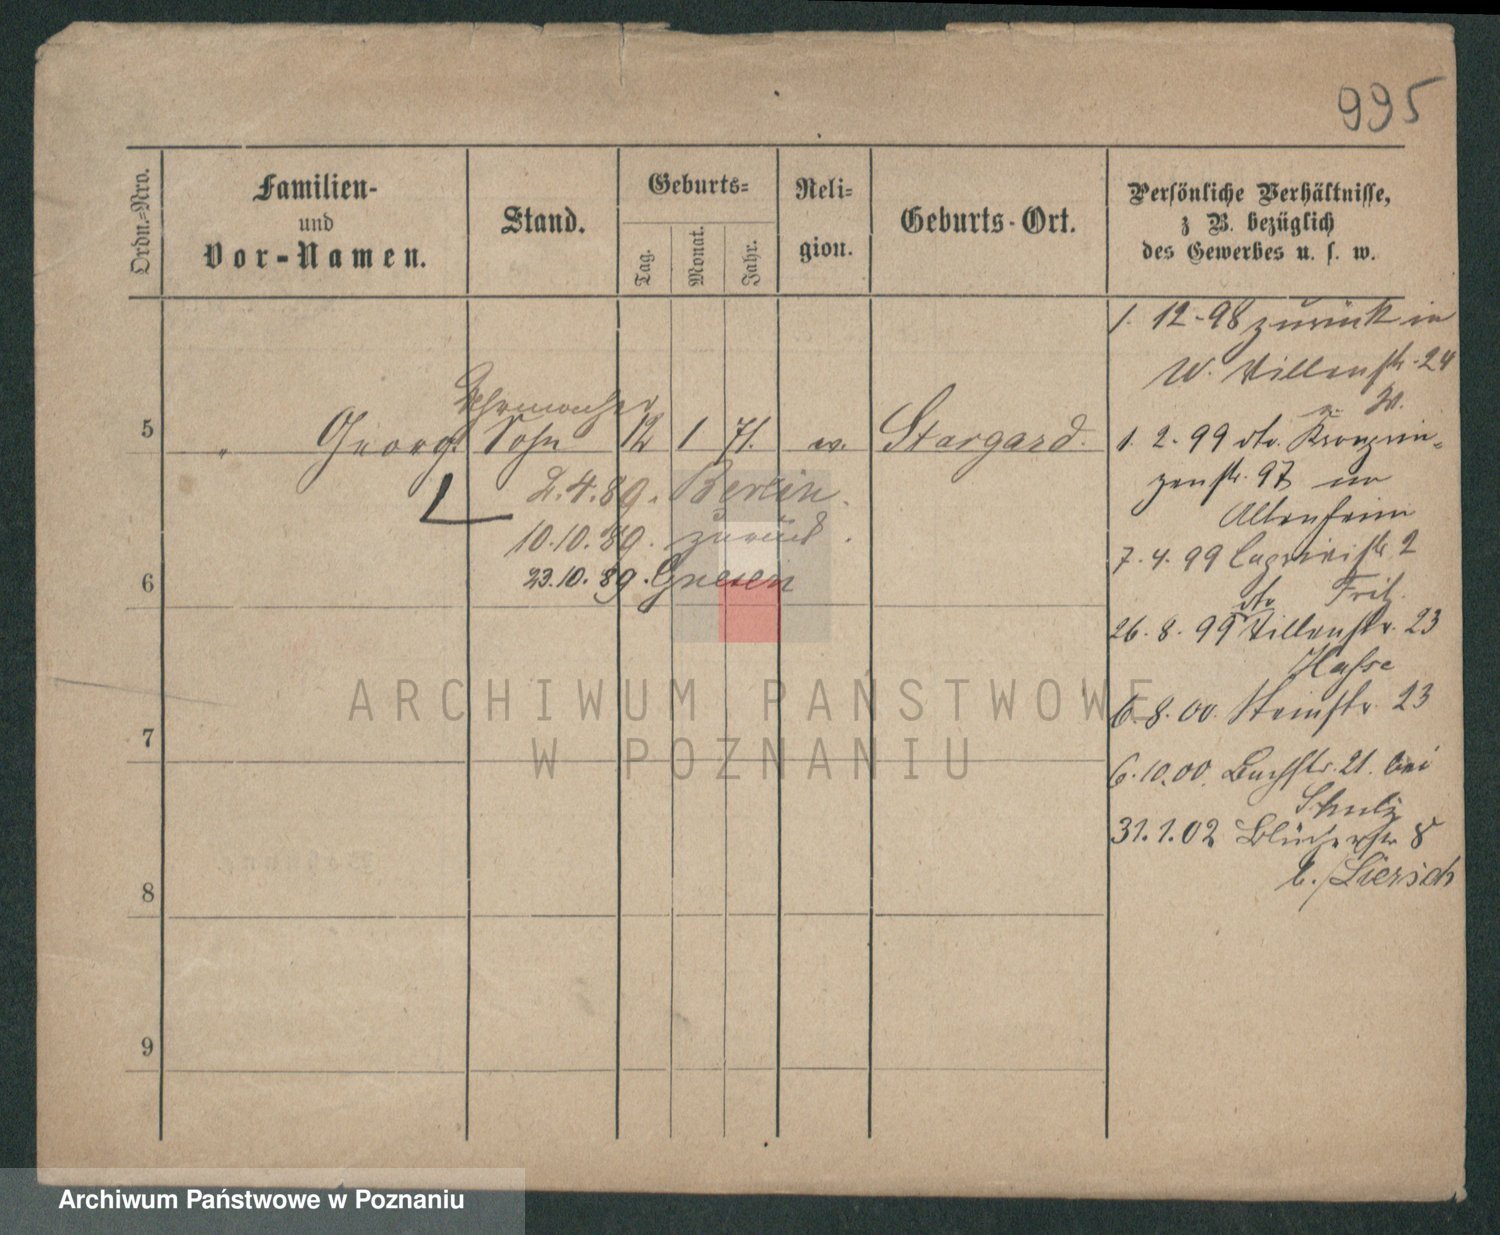 995
Ordn.=Nro.
Familien-
und
Vor-Namen.
Stand.
Geburts=
Tag.
Monat.
Jahr.
Reli-
gion.
Geburts-Ort.
Persönliche Verhältnisse,
z B. bezüglich
des Gewerbes u. s. w.
1. 12.-98 zurück in
W. Villenstr. 24
5 " Georg Uhrmacher Sohn 12 1 71. ev. Stargard.
1. 2.-99 dto. Kronprin-
zenstr. 97
2.4.89. Berlin.
10.10.89. zurück.
23.10.89. Gnesen
Altenheim
7.4.99 2
dto
26.8.99 Villenstr. 23
6
Hasse
6.8.00. Steinstr. 23
7
6.10.00. Bachstr. 21. bei
Schulz
31.1.02 Blücherstr 8
b. Liersch
8
9
ARCHIWUM PAŃSTWOWE
W POZNANIU
Archiwum Państwowe w Poznaniu